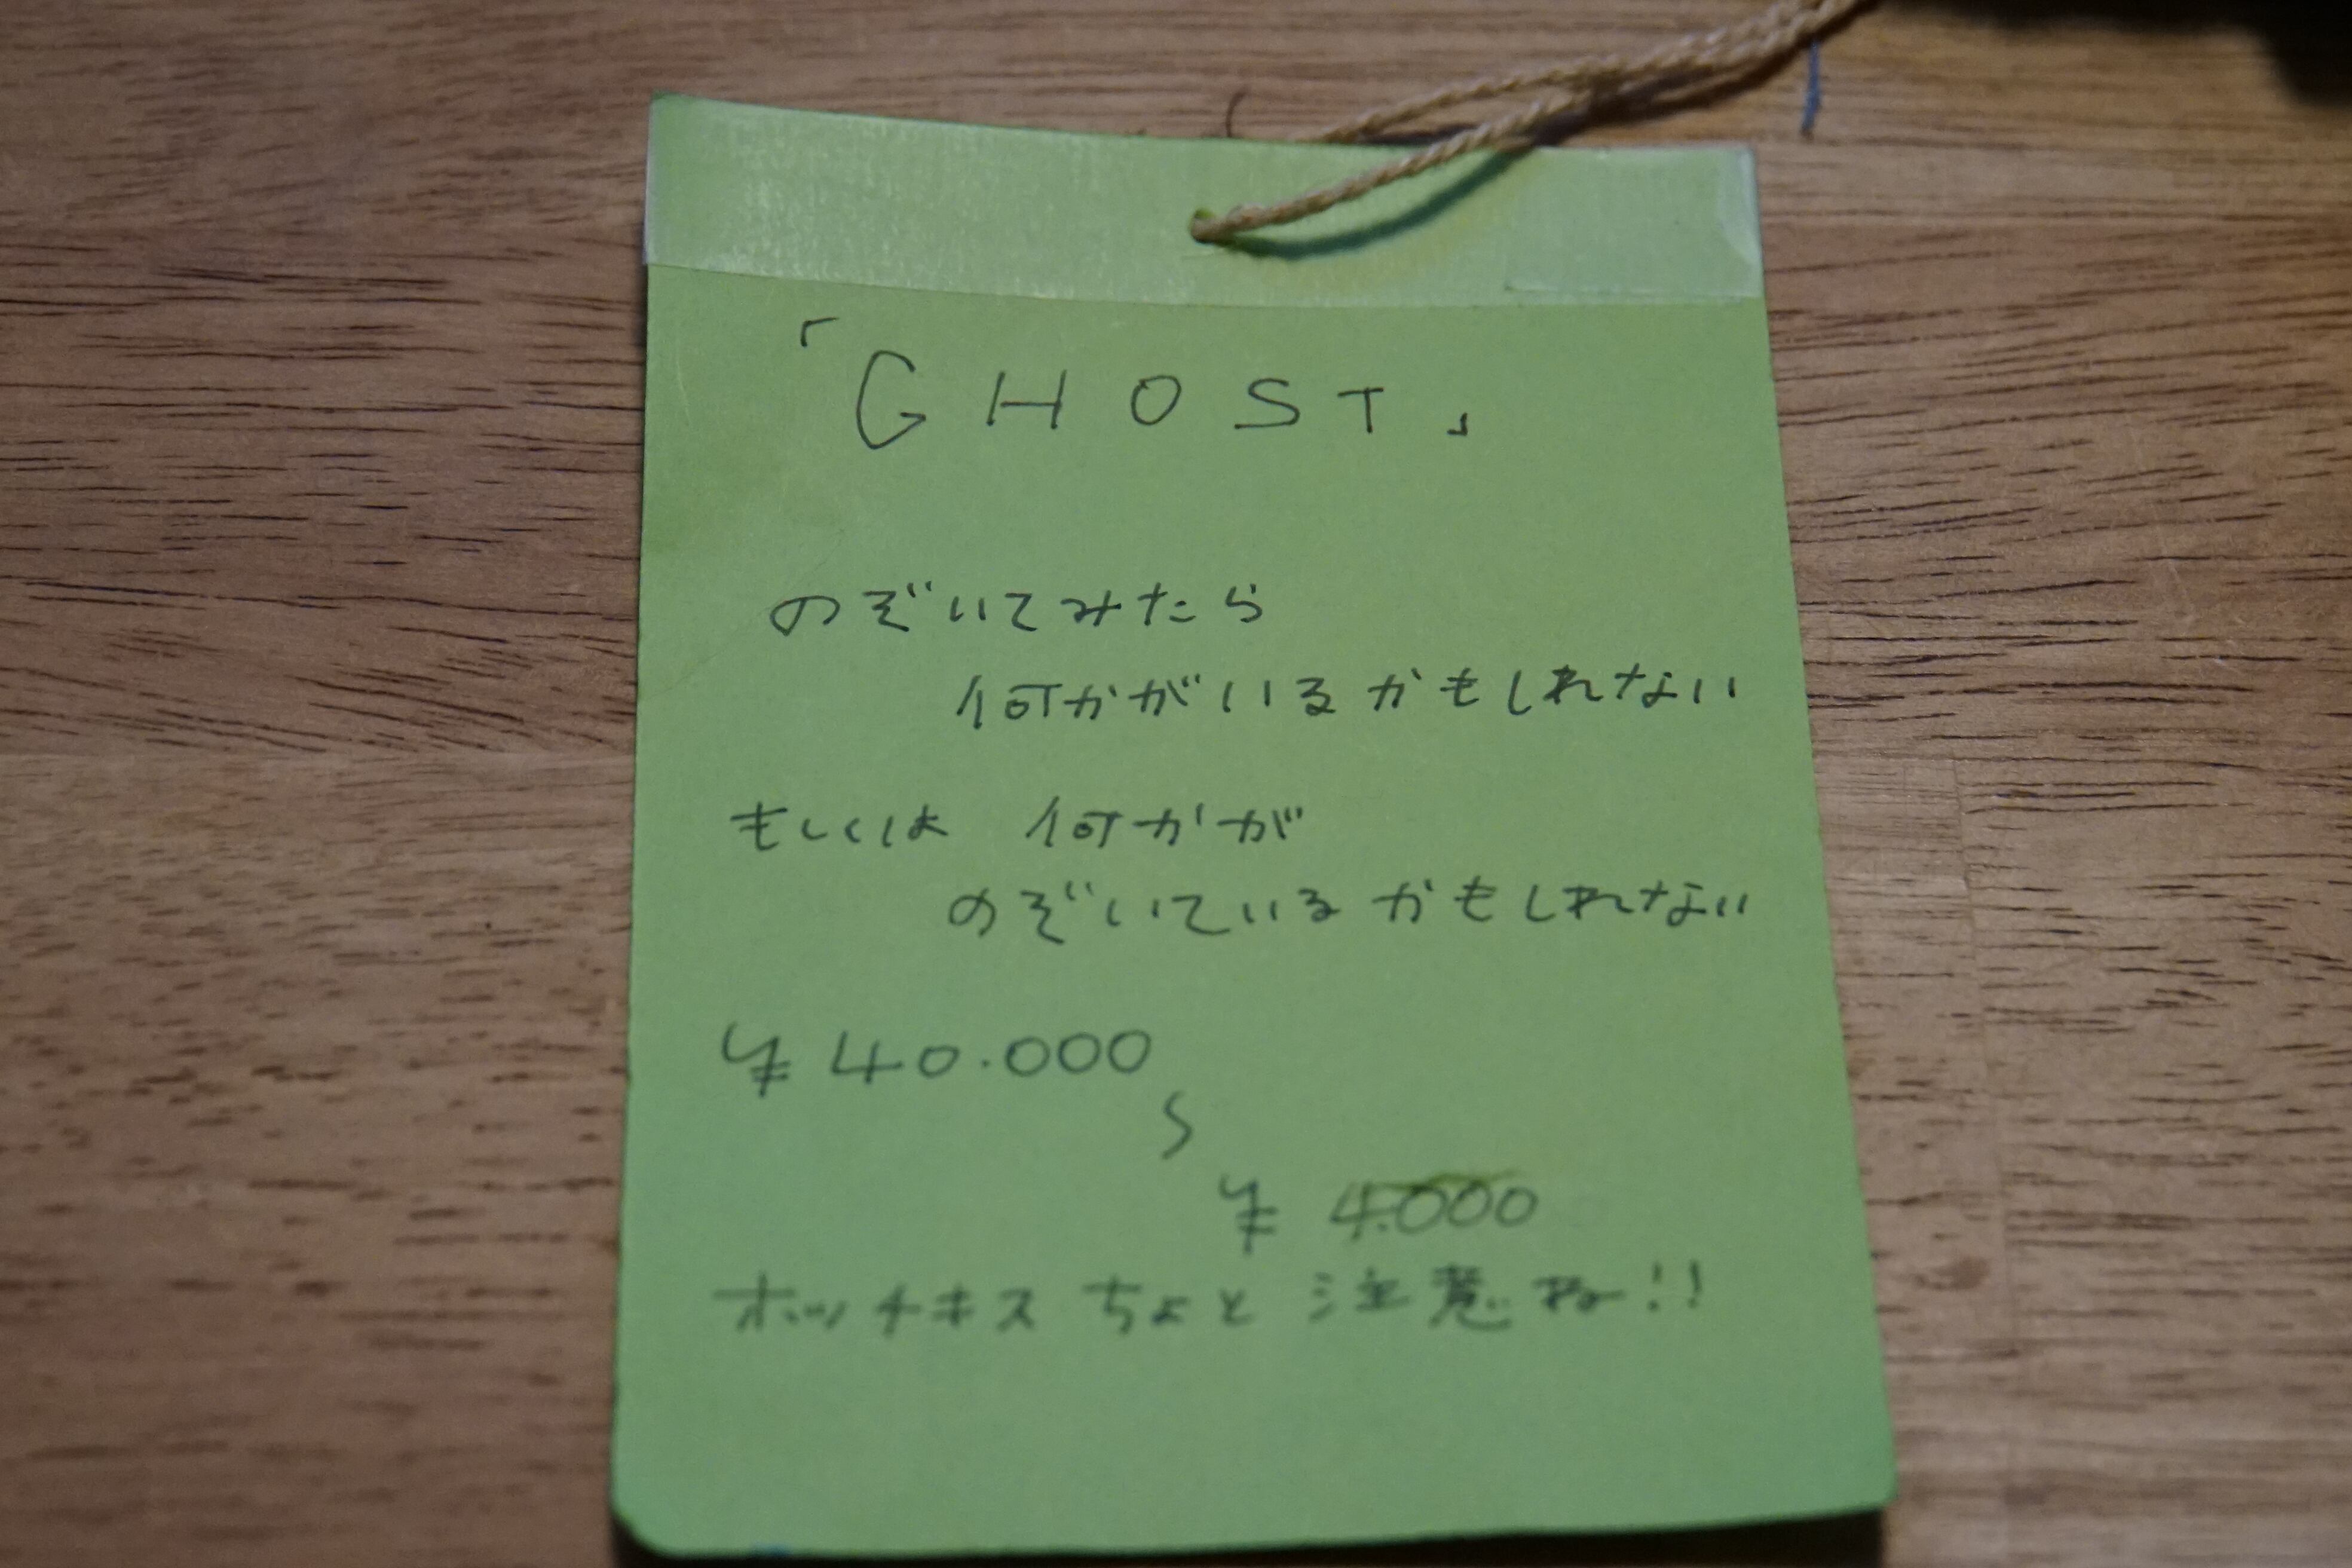 「GHOST」
のぞいてみたら
何かがいるかもしれない
もしくは 何かが
のぞいているかもしれない
¥40.000
〜
¥4.000
ホッチキス ちょと 注意ね!!